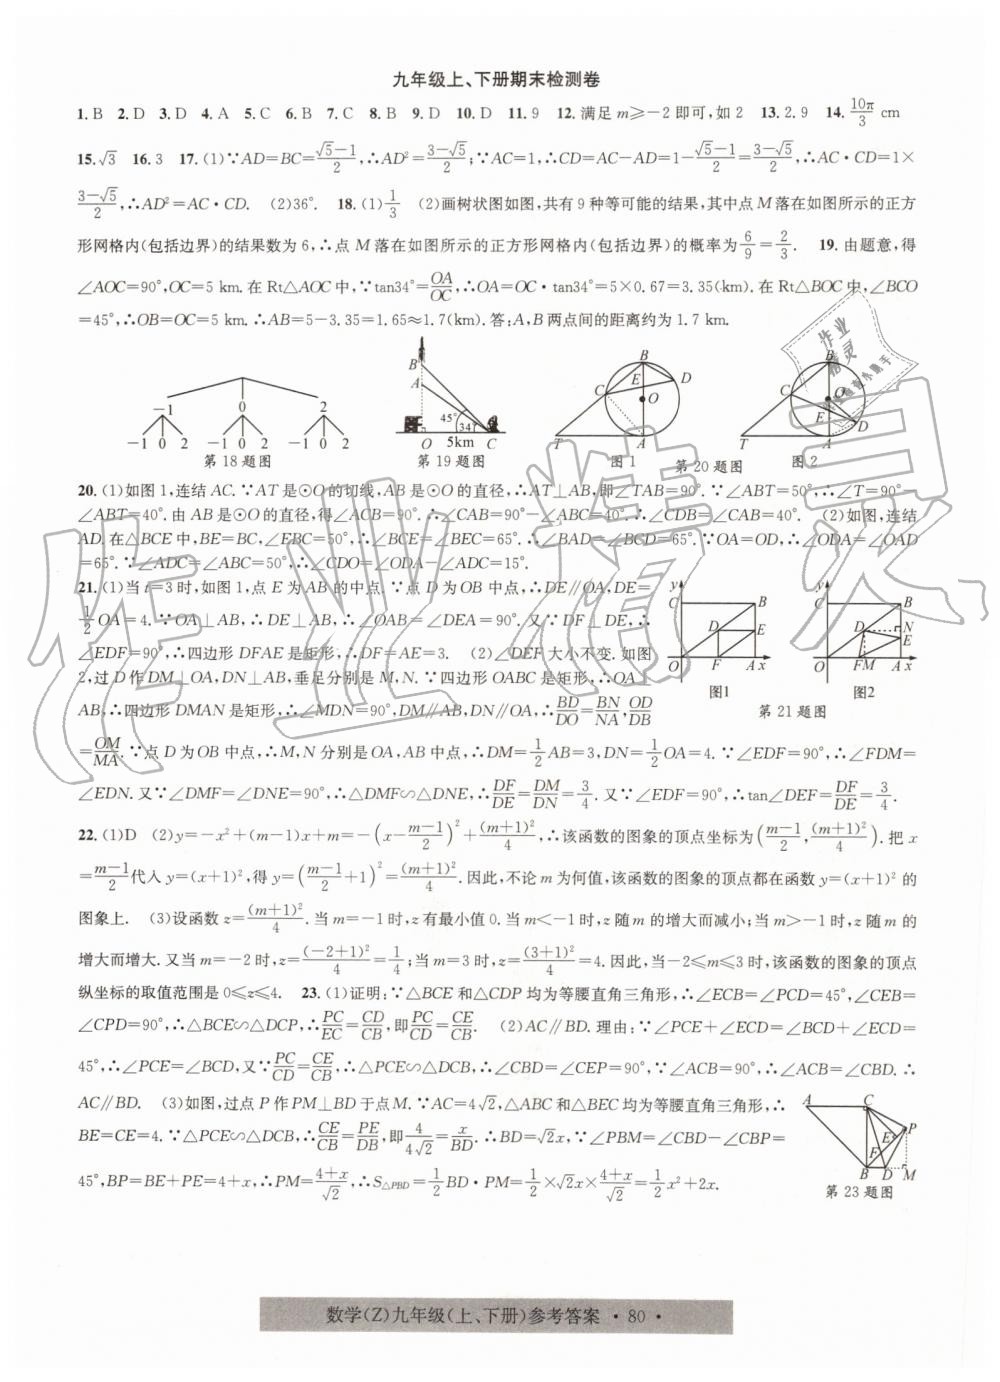 九年级上、下册期末检测卷
1.B 2.D 3.D 4.A 5.C 6.B 7.C 8.B 9.D 10.D 11.9 12.满足m≥-2即可,如2 13.2.9 14.10π/3 cm
15.√3 16.3 17.(1)∵AD=BC=(√5-1)/2,∴AD²=(3-√5)/2;∵AC=1,∴CD=AC-AD=1-(√5-1)/2=(3-√5)/2,∴AC·CD=1×
(3-√5)/2,∴AD²=AC·CD. (2)36°. 18.(1)1/3 (2)画树状图如图,共有9种等可能的结果,其中点M落在如图所示的正方
形网格内(包括边界)的结果数为6,∴点M落在如图所示的正方形网格内(包括边界)的概率为6/9=2/3. 19.由题意,得
∠AOC=90°,OC=5 km.在Rt△AOC中,∵tan34°=OA/OC,∴OA=OC·tan34°=5×0.67=3.35(km).在Rt△BOC中,∠BCO
=45°,∴OB=OC=5 km.∴AB=5-3.35=1.65≈1.7(km).答:A,B两点间的距离约为1.7 km.
-1 0 2
-1 0 2 -1 0 2 -1 0 2
第18题图
B A 45° 34° O 5km C
第19题图
B E D C O T A
图1
第20题图
B C O E D T A
图2
20.(1)如图1,连结AC.∵AT是⊙O的切线,AB是⊙O的直径,∴AT⊥AB,即∠TAB=90°.∵∠ABT=50°,∴∠T=90°-
∠ABT=40°.由AB是⊙O的直径,得∠ACB=90°.∴∠CAB=90°-∠ABC=40°.∴∠CDB=∠CAB=40°. (2)如图,连结
AD.在△BCE中,BE=BC,∠EBC=50°,∴∠BCE=∠BEC=65°.∴∠BAD=∠BCD=65°.∵OA=OD,∴∠ODA=∠OAD
=65°.∵∠ADC=∠ABC=50°,∴∠CDO=∠ODA-∠ADC=15°.
21.(1)当t=3时,如图1,点E为AB的中点.∵点D为OB中点,∴DE∥OA,DE=
1/2 OA=4.∵OA⊥AB,∴DE⊥AB,∴∠OAB=∠DEA=90°.又∵DF⊥DE,∴
∠EDF=90°,∴四边形DFAE是矩形,∴DF=AE=3. (2)∠DEF大小不变.如图
2,过D作DM⊥OA,DN⊥AB,垂足分别是M,N.∵四边形OABC是矩形,∴OA⊥
AB,∴四边形DMAN是矩形,∴∠MDN=90°,DM∥AB,DN∥OA,∴BD/DO=BN/NA,OD/DB
=OM/MA.∵点D为OB中点,∴M,N分别是OA,AB中点,∴DM=1/2 AB=3,DN=1/2 OA=4.∵∠EDF=90°,∴∠FDM=
∠EDN.又∵∠DMF=∠DNE=90°,∴△DMF∽△DNE,∴DF/DE=DM/DN=3/4.又∵∠EDF=90°,∴tan∠DEF=DF/DE=3/4.
y C B D E O F A x
图1
y C B D N E O F M A x
图2
第21题图
22.(1)D (2)y=-x²+(m-1)x+m=-(x-(m-1)/2)²+(m+1)²/4,∴该函数的图象的顶点坐标为((m-1)/2,(m+1)²/4).把x
=(m-1)/2代入y=(x+1)²,得y=((m-1)/2+1)²=(m+1)²/4.因此,不论m为何值,该函数的图象的顶点都在函数y=(x+1)²的
图象上. (3)设函数z=(m+1)²/4.当m=-1时,z有最小值0.当m<-1时,z随m的增大而减小;当m>-1时,z随m的
增大而增大.又当m=-2时,z=(-2+1)²/4=1/4;当m=3时,z=(3+1)²/4=4.因此,当-2≤m≤3时,该函数的图象的顶点
纵坐标的取值范围是0≤z≤4. 23.(1)证明:∵△BCE和△CDP均为等腰直角三角形,∴∠ECB=∠PCD=45°,∠CEB=
∠CPD=90°,∴△BCE∽△DCP,∴PC/EC=CD/CB,即PC/CD=CE/CB. (2)AC∥BD.理由:∵∠PCE+∠ECD=∠BCD+∠ECD=
45°,∴∠PCE=∠BCD,又∵PC/CD=CE/CB,∴△PCE∽△DCB,∴∠CBD=∠CEP=90°.∵∠ACB=90°,∴∠ACB=∠CBD.∴
AC∥BD. (3)如图,过点P作PM⊥BD于点M.∵AC=4√2,△ABC和△BEC均为等腰直角三角形,∴
BE=CE=4.∵△PCE∽△DCB,∴CE/CB=PE/DB,即4/4√2=x/BD.∴BD=√2x,∵∠PBM=∠CBD-∠CBP=
45°,BP=BE+PE=4+x,∴PM=(4+x)/√2,∴S△PBD=1/2 BD·PM=1/2×√2x×(4+x)/√2=1/2 x²+2x.
A C E P F B D M
第23题图
数学(Z)九年级(上、下册)参考答案 ·80·
作业精灵